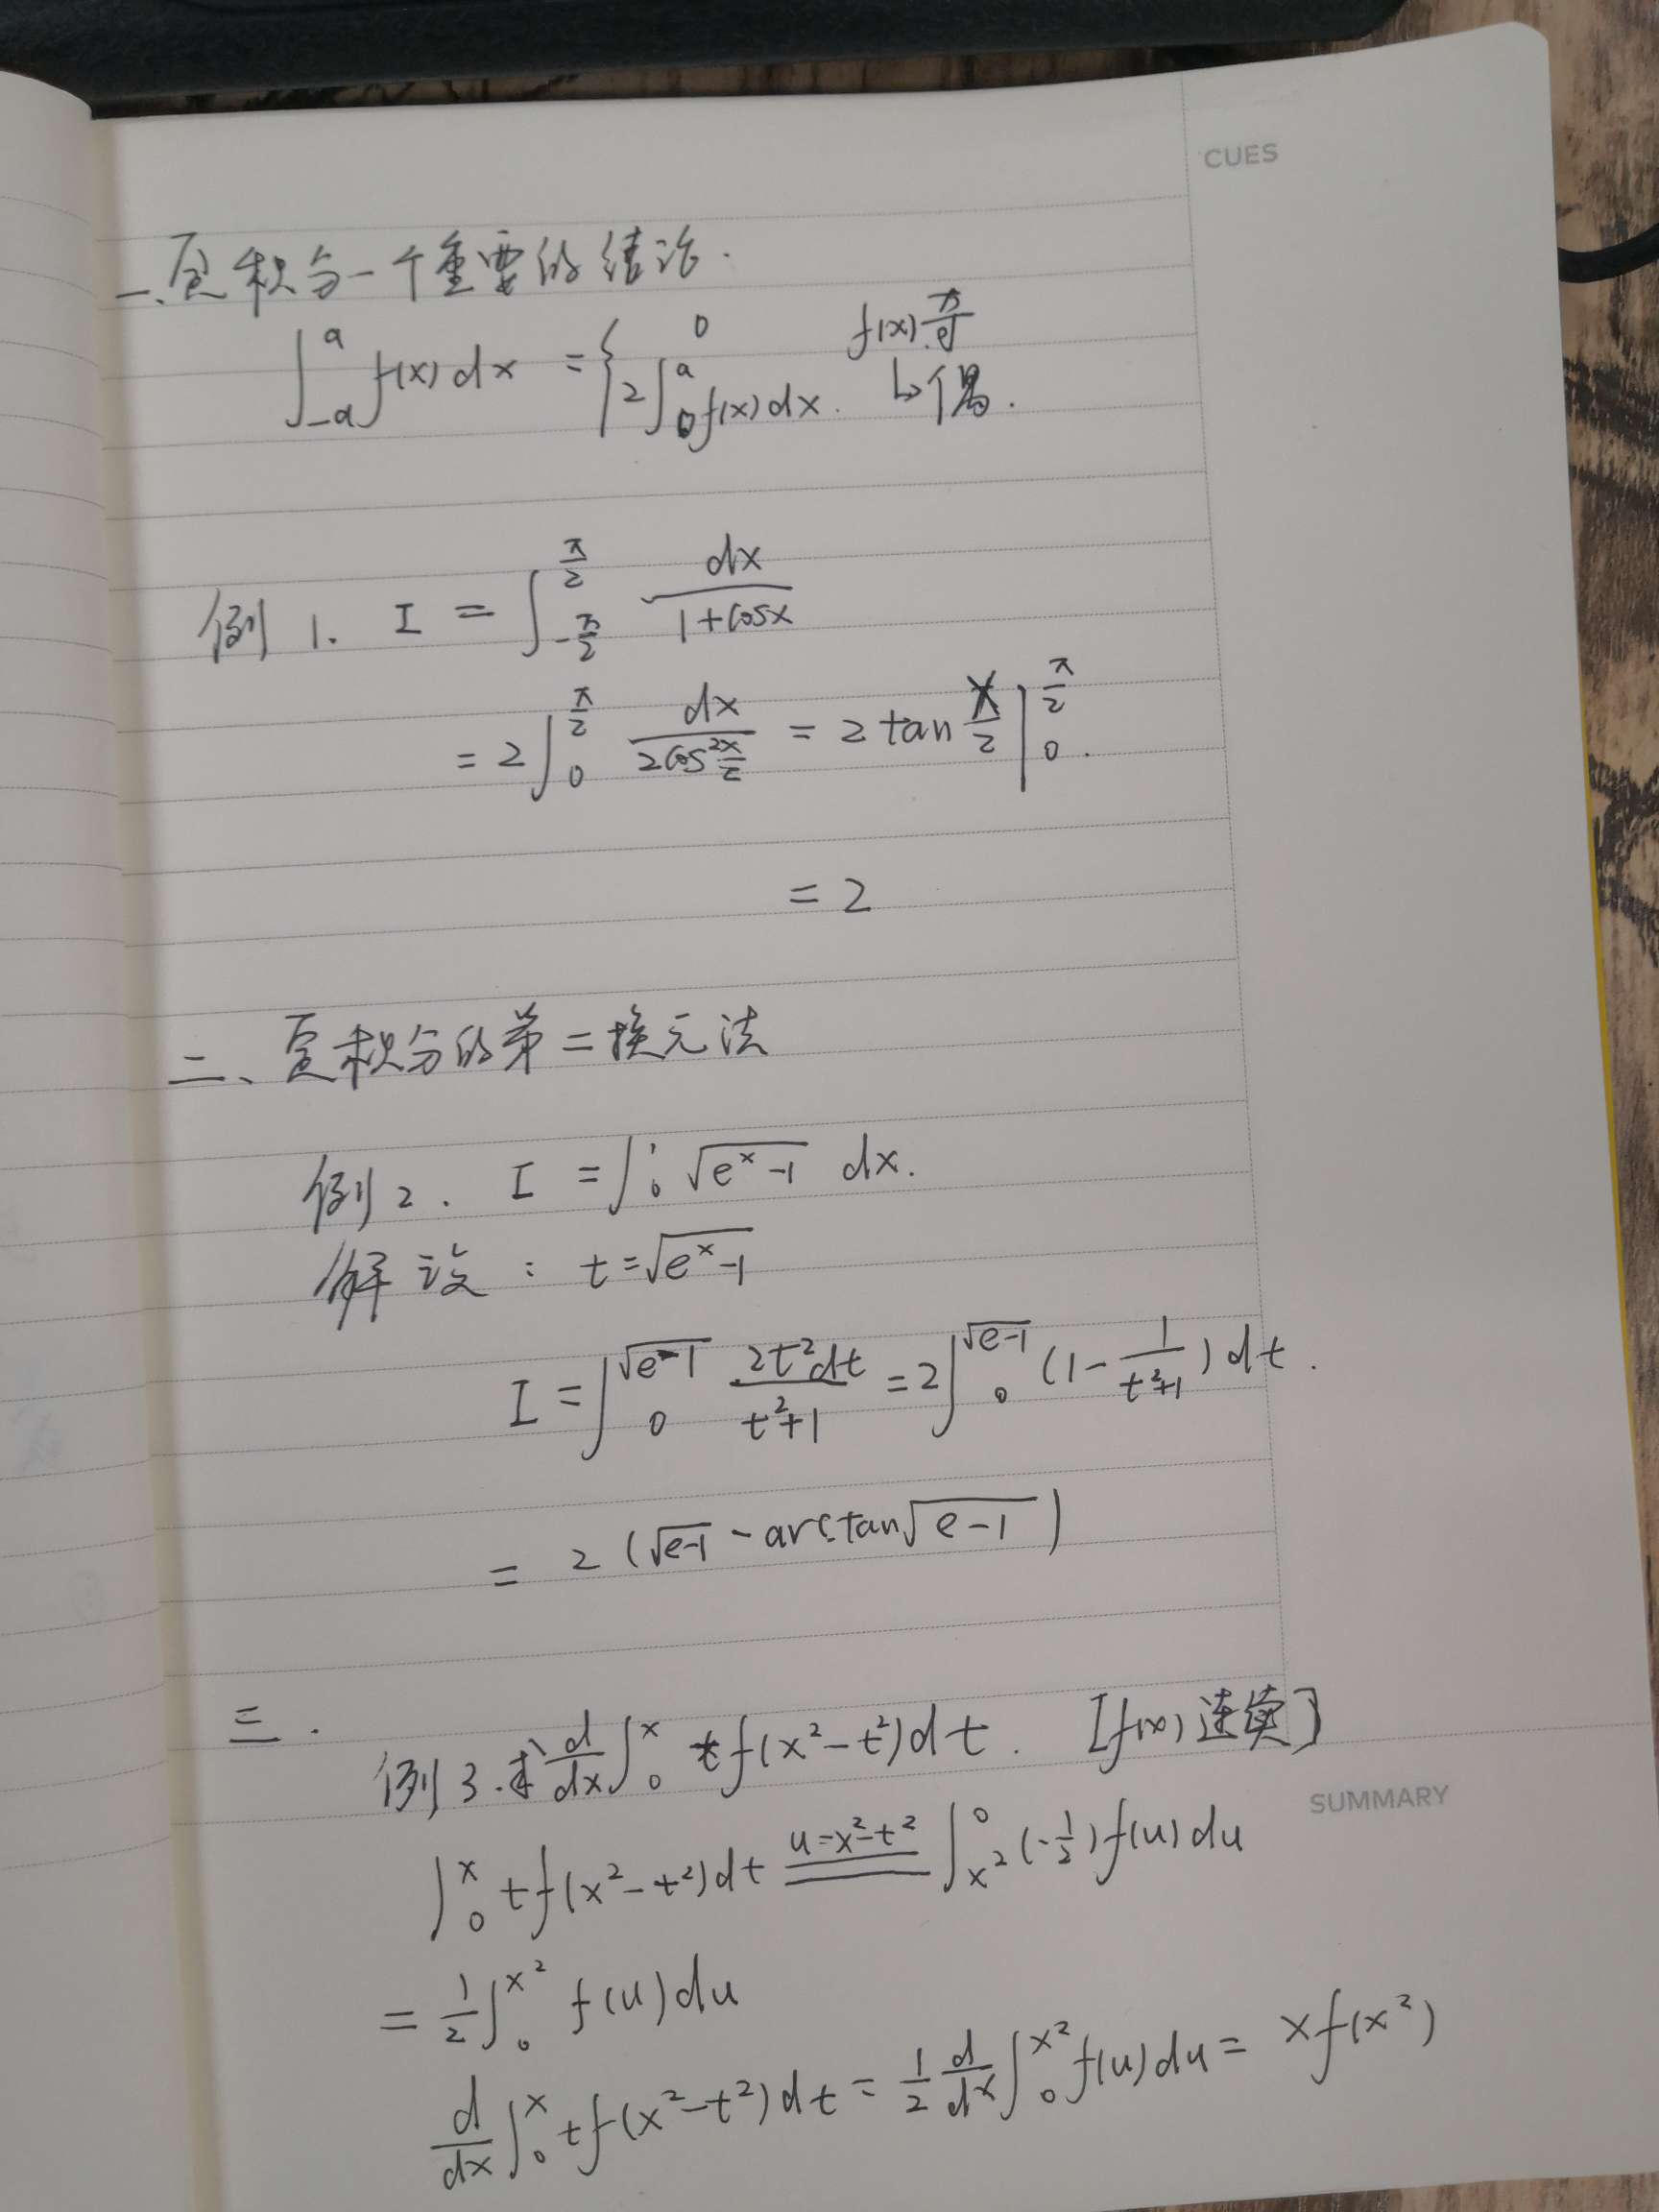 CUES
一、定积分一个重要的结论.
∫_{-a}^{a} f(x)dx = { 0 f(x).奇
2∫_0^a f(x)dx. ↳偶.
例1. I = ∫_{-π/2}^{π/2} dx/(1+cosx)
= 2∫_0^{π/2} dx/(2cos²(x/2)) = 2 tan(x/2) |_0^{π/2}.
= 2
二、定积分的第二换元法
例2. I = ∫_0^1 √(e^x-1) dx.
解设: t=√(e^x-1)
I = ∫_0^{√(e-1)} 2t²dt/(t²+1) = 2∫_0^{√(e-1)} (1-1/(t²+1))dt.
= 2(√(e-1) - arctan√(e-1))
三.
例3.求 d/dx ∫_0^x tf(x²-t²)dt. [f(x)连续]
SUMMARY
∫_0^x tf(x²-t²)dt \overset{u=x²-t²}{=} ∫_{x²}^0 (-1/2)f(u)du
= 1/2 ∫_0^{x²} f(u)du
d/dx ∫_0^x tf(x²-t²)dt = 1/2 d/dx ∫_0^{x²} f(u)du = xf(x²)